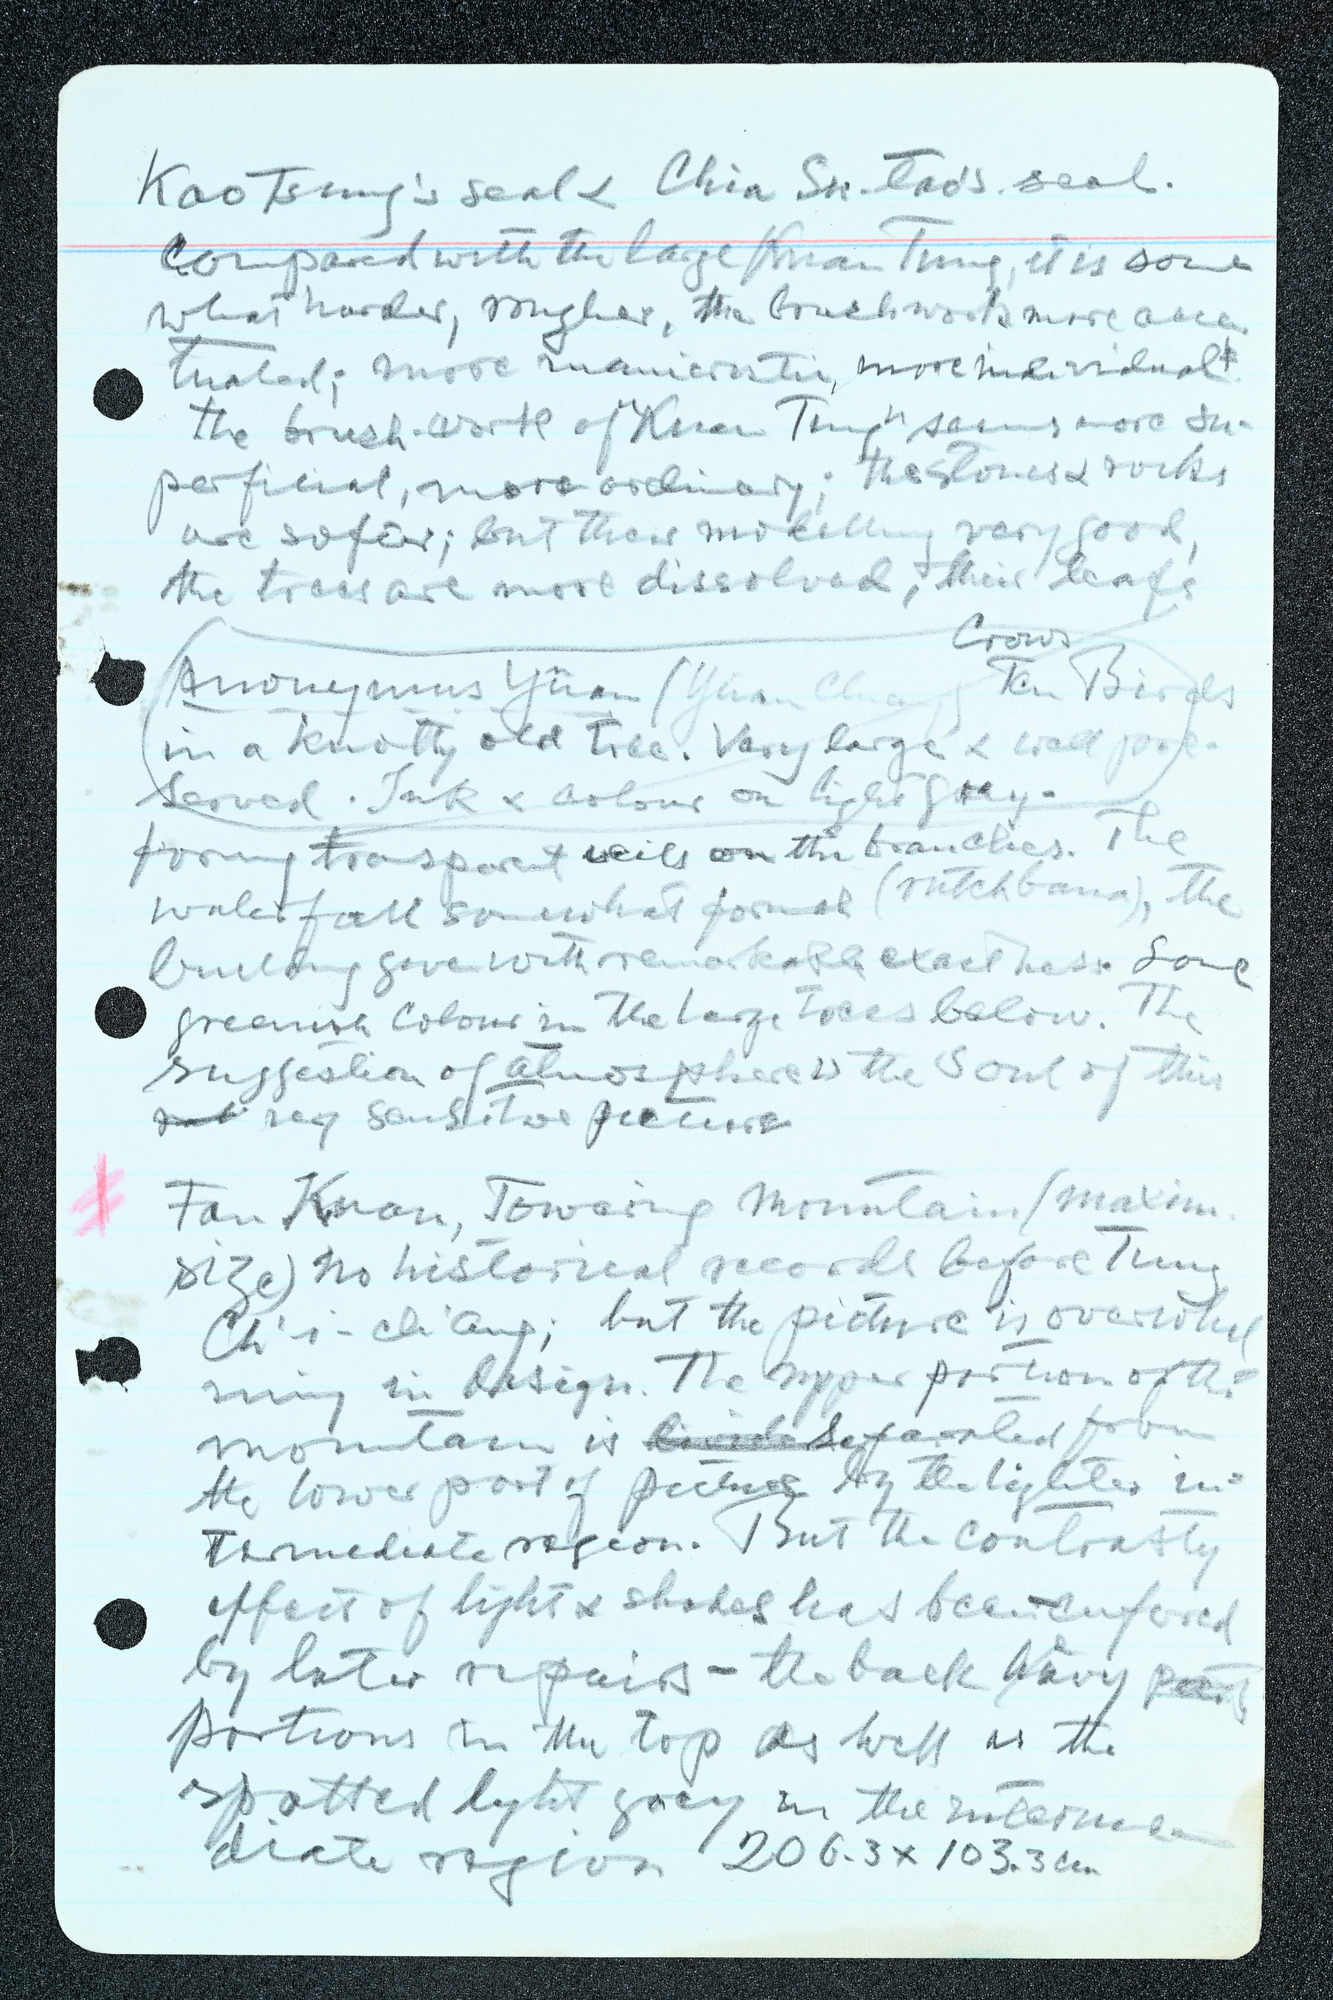 Kao Tsung's seal & Chia Su-tao's seal.
Compared with the large Kuan Tung, it is some
what harder, rougher, the brushwork more accen
tuated; more manieristic, more individual.
the brush-work of "Kuan Tung" seems more su-
perficial, more ordinary; the stones & rocks
are softer; but their modelling very good,
the trees are more dissolved; their leafs
Crows
Anonymus Yüan (Yüan Chuang) Ten Birds
in a knotty old tree. Very large & well pre-
served. Ink & colour on light gray-
forming transparent veils on the branches. The
waterfall somewhat formal (rutchbana), the
building given with remarkable exactness. Some
greenish colour in the large trees below. The
suggestion of atmosphere is the soul of this
very sensitive picture
Fan Kuan, Towering Mountain (maxim.
size) No historical records before Tung
Ch'i-ch'ang; but the picture is overwhel
ming in design. The upper portion of the
mountain is separated from
the lower part of picture by the lighter in-
termediate region. But the contrasty
effect of light & shades has been enforced
by later repairs - the back wavy
portions in the top as well as the
spotted light grey in the interme
diate region 206.3 x 103.3 cm